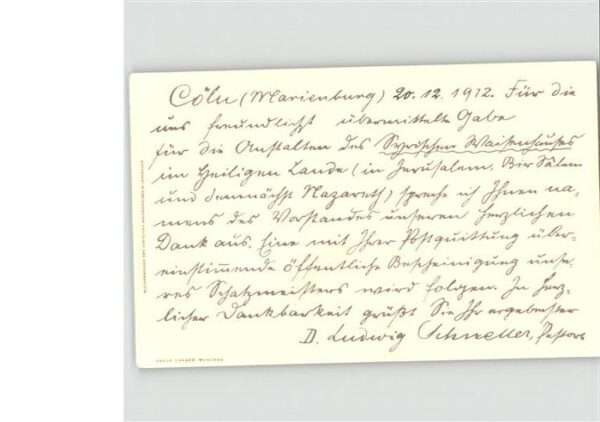 Cöln (Marienburg) 20.12.1912. Für die
uns freundlichst übermittelte Gabe
für die Anstalten des Syrischen Waisenhauses
im Heiligen Lande (in Jerusalem, Bir Sâlem
und demnächst Nazareth) spreche ich Ihnen na-
mens des Vorstandes unseren herzlichen
Dank aus. Eine mit Ihrer Postquittung über-
einstimmende öffentliche Bescheinigung unse-
res Schatzmeisters wird folgen. In herz-
licher Dankbarkeit grüßt Sie Ihr ergebenster
D. Ludwig Schneller, Pastor